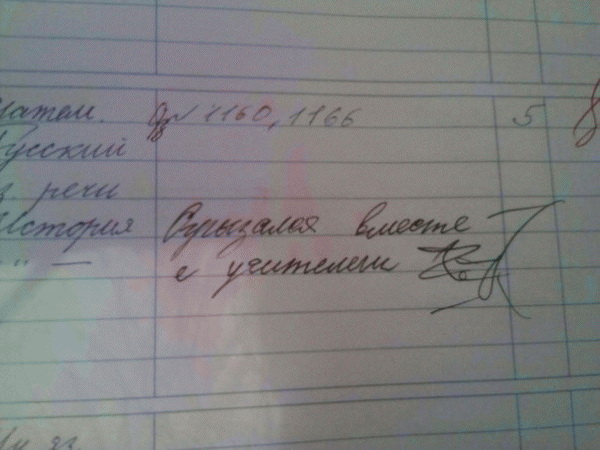 Матем. № 1160, 1166 5
Русский
з. речи
История Огрызался вместе
" — с учителем